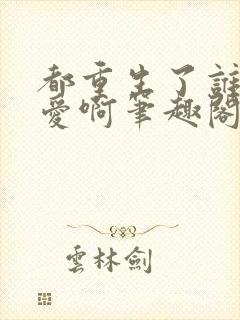 都重生了誰
愛啊筆趣閣
雲林劍